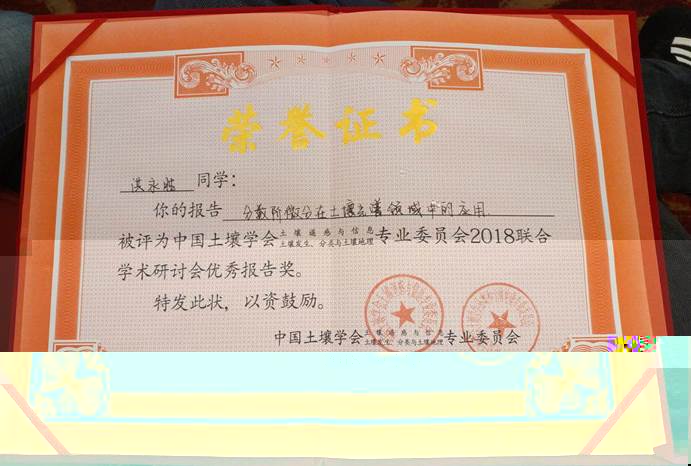 荣誉证书
洪永胜 同学：
你的报告 分数阶微分在土壤光谱领域中的应用
被评为中国土壤学会土壤遥感与信息 土壤发生、分类与土壤地理专业委员会2018联合
学术研讨会优秀报告奖。
特发此状，以资鼓励。
中国土壤学会土壤遥感与信息 土壤发生、分类与土壤地理专业委员会